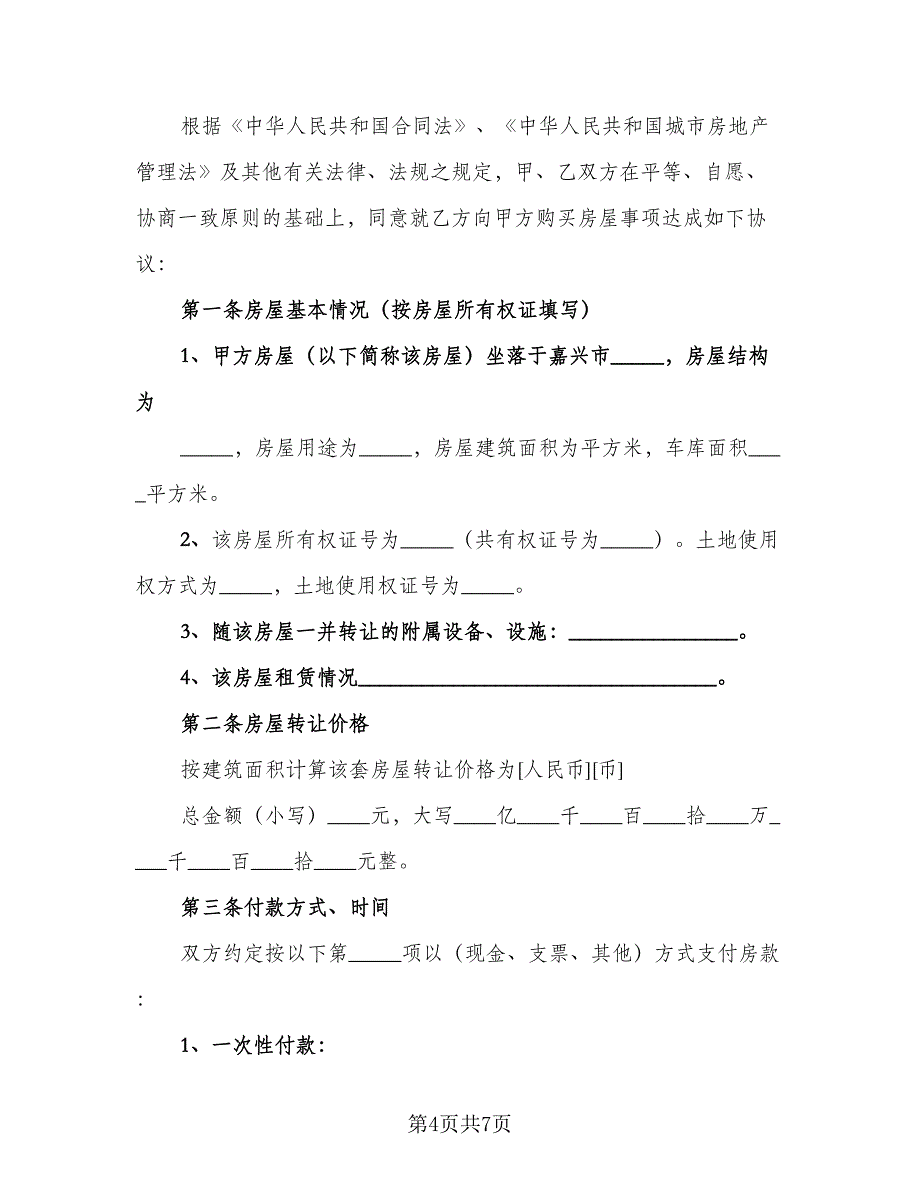 根据《中华人民共和国合同法》、《中华人民共和国城市房地产
管理法》及其他有关法律、法规之规定，甲、乙双方在平等、自愿、
协商一致原则的基础上，同意就乙方向甲方购买房屋事项达成如下协
议：
第一条房屋基本情况（按房屋所有权证填写）
1、甲方房屋（以下简称该房屋）坐落于嘉兴市_____，房屋结构
为
_____，房屋用途为_____，房屋建筑面积为平方米，车库面积___
_平方米。
2、该房屋所有权证号为_____（共有权证号为_____）。土地使用
权方式为_____，土地使用权证号为_____。
3、随该房屋一并转让的附属设备、设施：________________。
4、该房屋租赁情况__________________________________。
第二条房屋转让价格
按建筑面积计算该套房屋转让价格为[人民币][币]
总金额（小写）____元，大写____亿____千____百____拾____万_
___千____百____拾____元整。
第三条付款方式、时间
双方约定按以下第_____项以（现金、支票、其他）方式支付房款
：
1、一次性付款：
第4页共7页